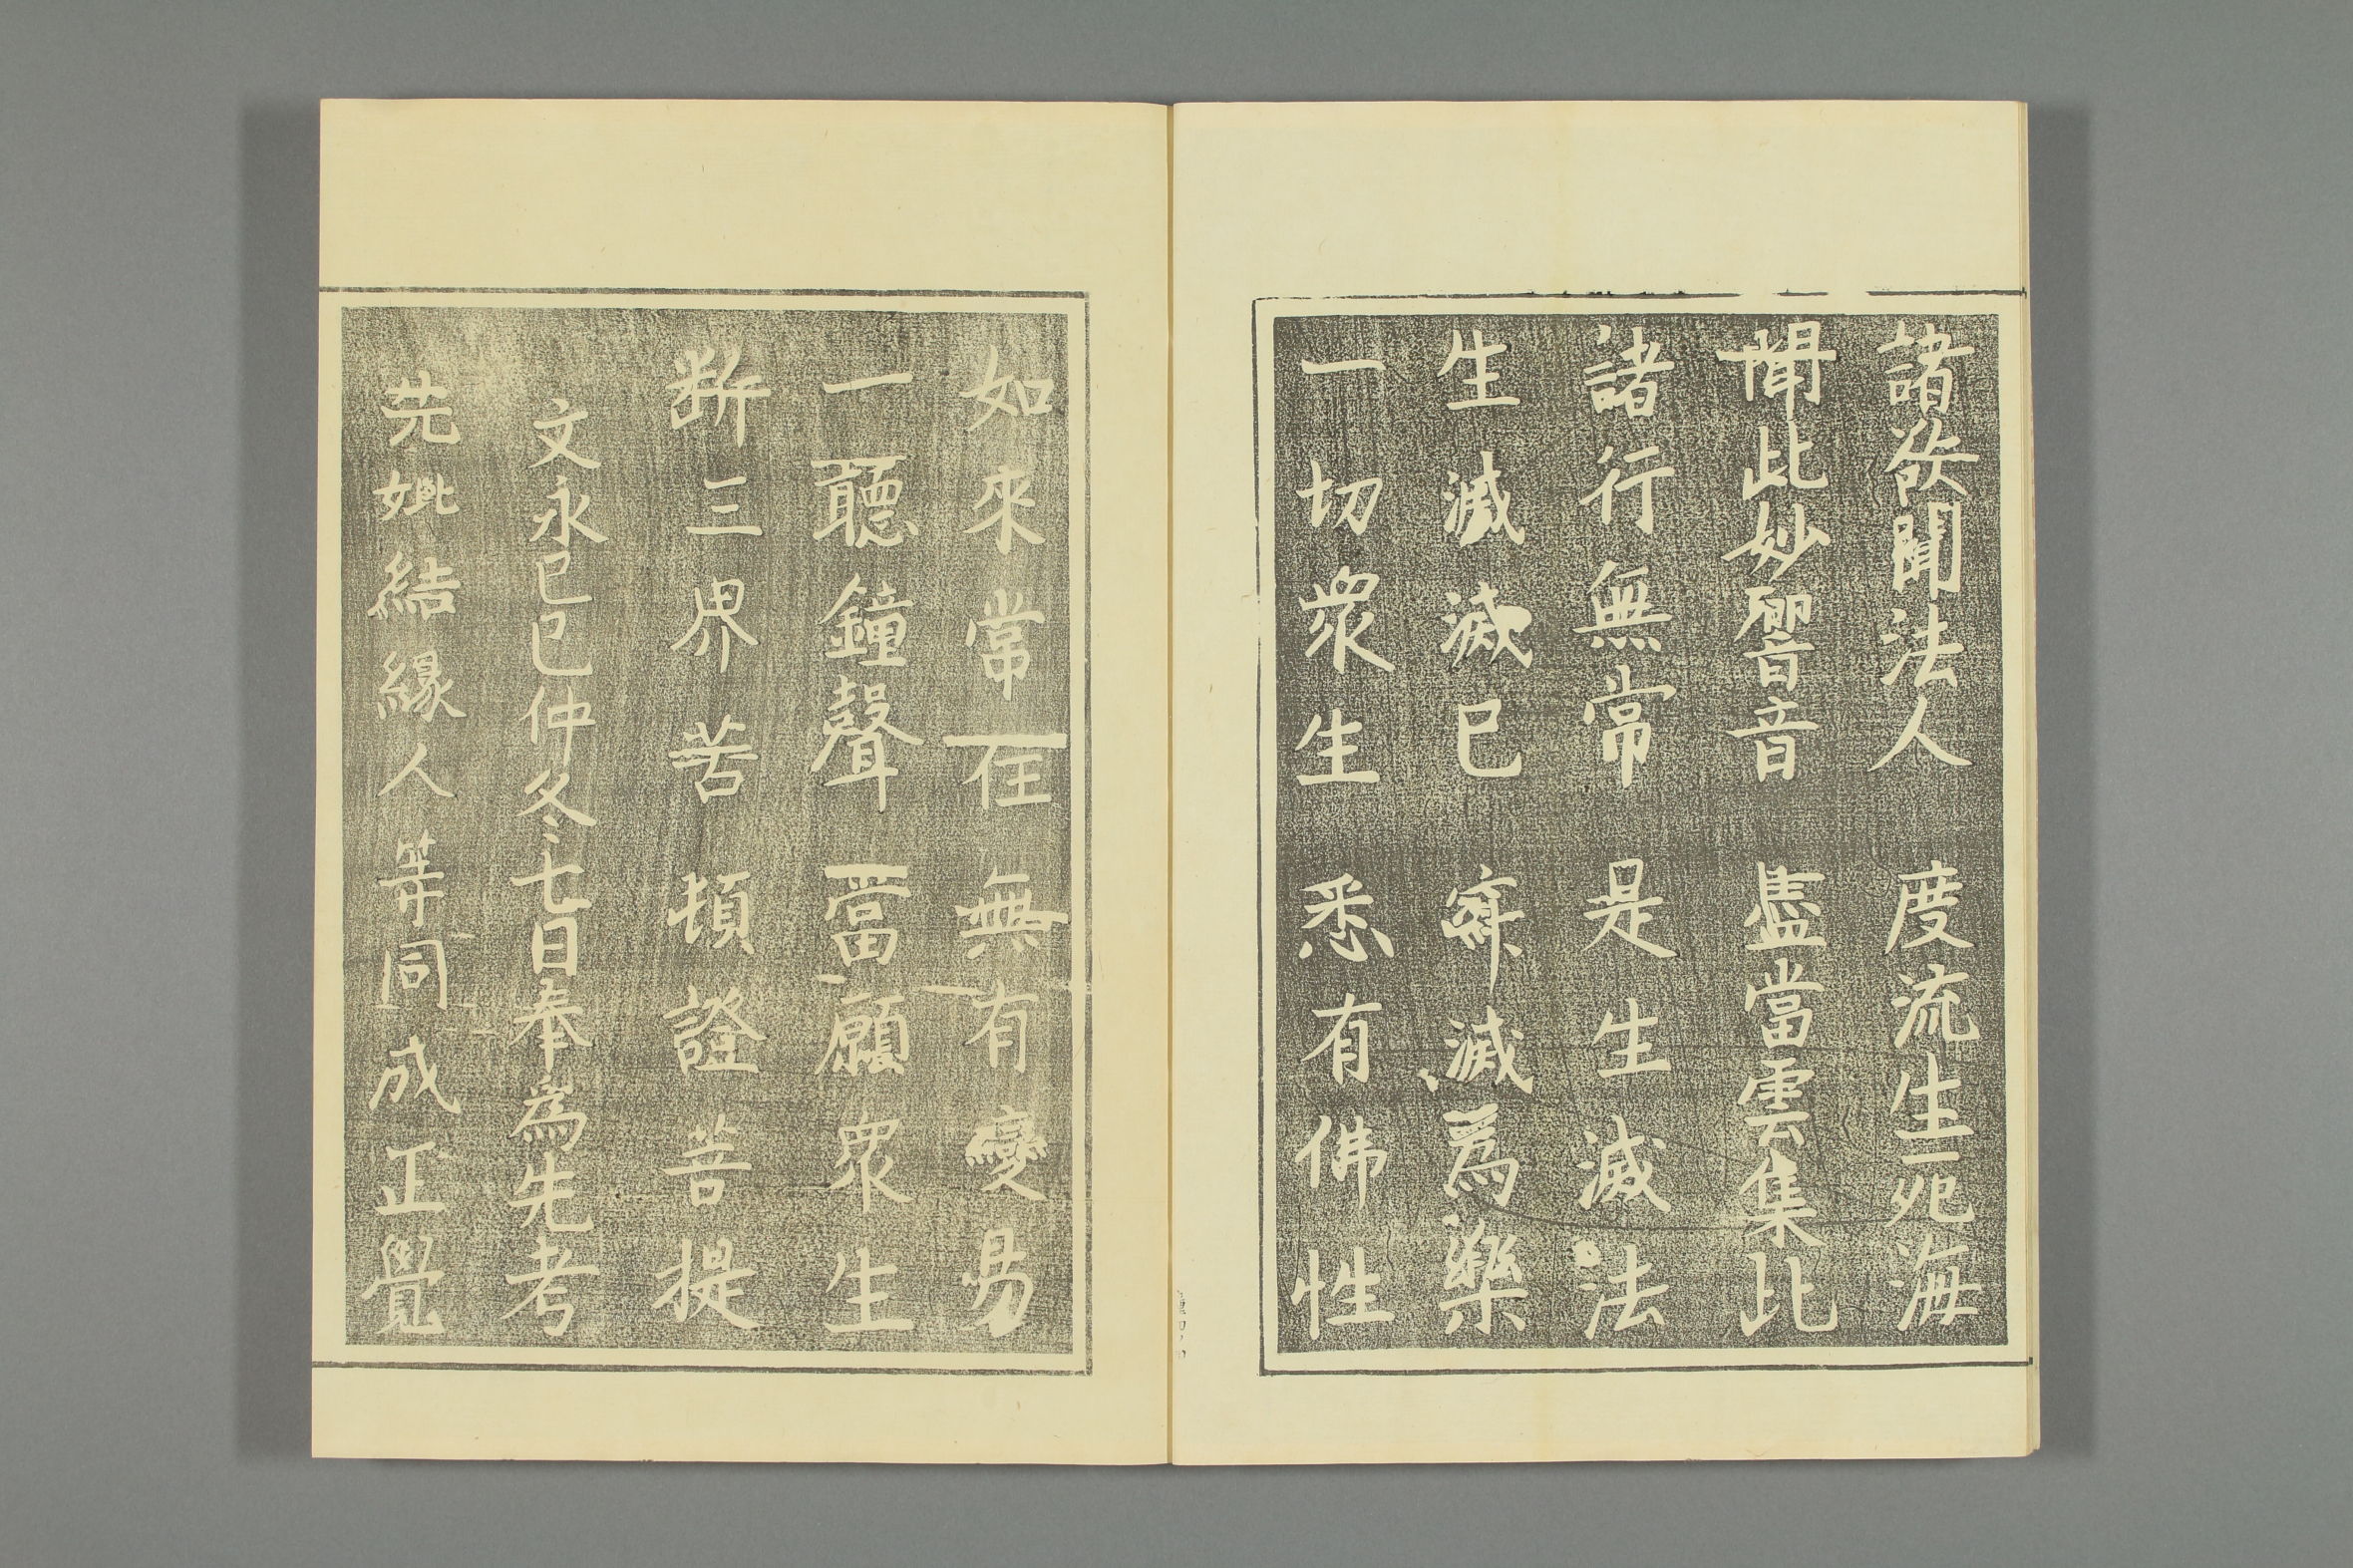 諸欲聞法人　度流生死海
聞此妙響音　盡當雲集此
諸行無常　是生滅法
生滅滅已　寂滅為樂
一切衆生　悉有佛性
如來常住　無有變易
一聽鐘聲　當願衆生
断三界苦　頓證菩提
文永己巳仲冬七日奉為先考
先妣結縁人等同成正覺